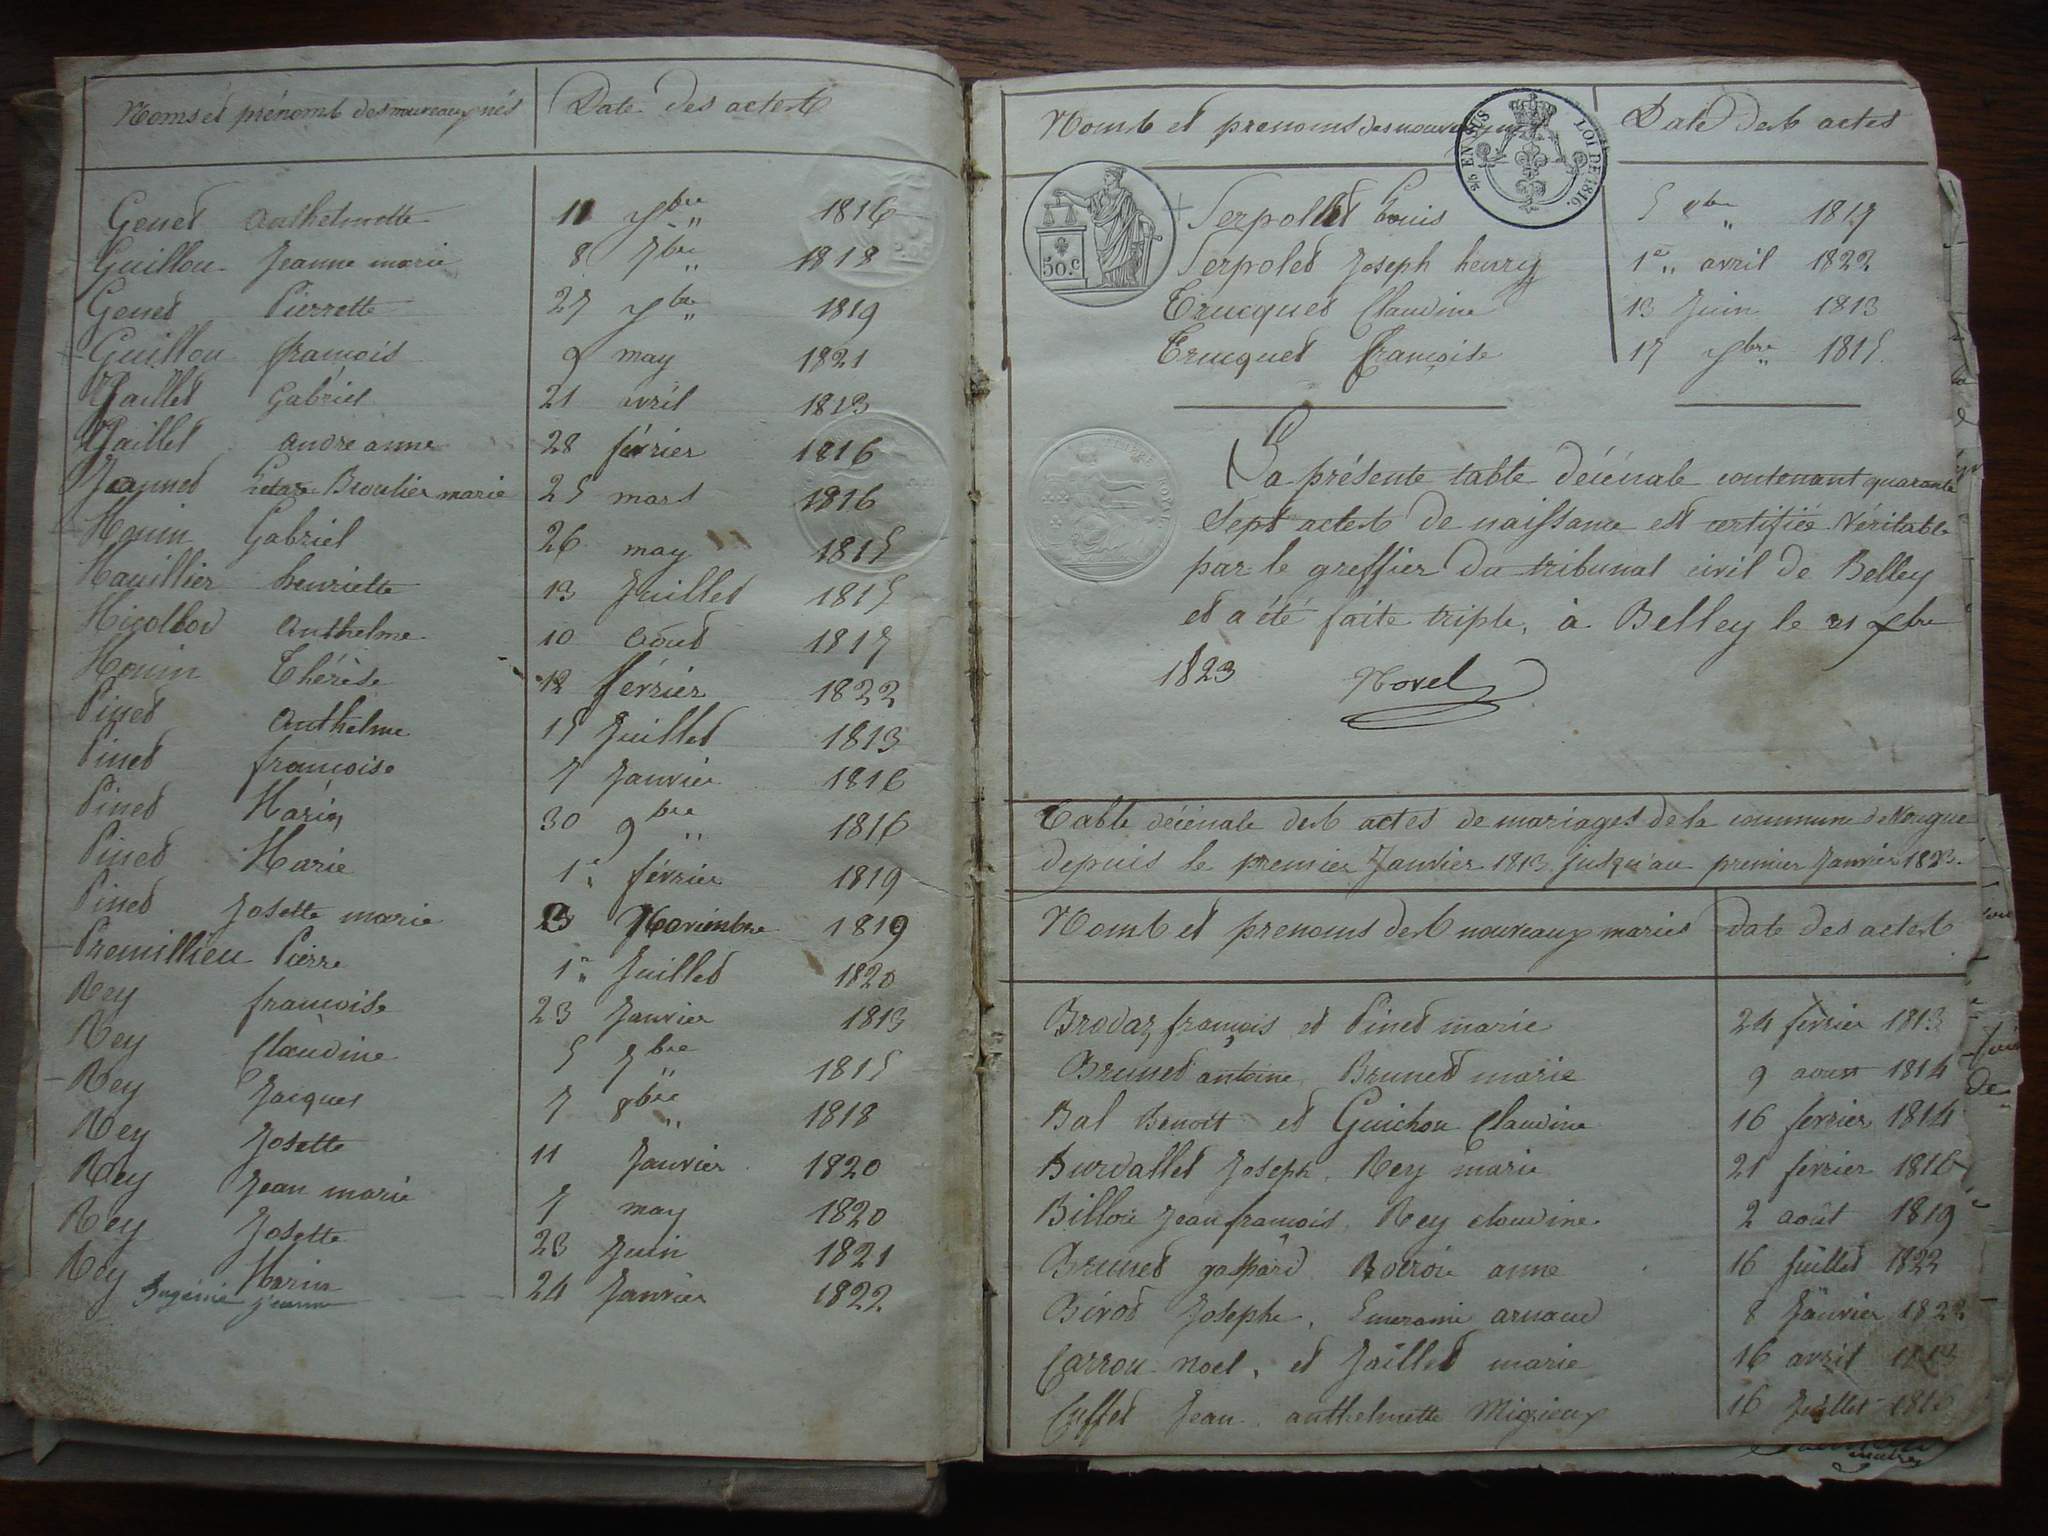 Noms et prénoms des nouveaux nés Date des actes
Genet Anthelmette 11 7bre 1816
Guillou Jeanne marie 8 7bre 1818
Genet Pierrette 27 7bre 1819
Guillou françois 9 may 1821
Jaillet Gabriel 21 avril 1813
Jaillet andre anne 28 février 1816
Jeannet Broulier marie 25 mars 1816
Monin Gabriel 26 may 1815
Mauillier henriette 13 Juillet 1815
Micollod Anthelme 10 Août 1817
Monin Thérèse 12 février 1822
Pinet Anthelme 15 Juillet 1813
Pinet françoise 7 Janvier 1816
Pinet Marin 30 9bre 1816
Pinet Marie 1er février 1819
Pinet Josette marie Novembre 1819
Premillieu Pierre 1er Juillet 1820
Rey françoise 23 Janvier 1813
Rey Claudine 5 7bre 1815
Rey Jacques 7 8bre 1818
Rey Josette 11 Janvier 1820
Rey Jean marie 7 may 1820
Rey Josette 23 Juin 1821
Rey Marin 24 Janvier 1822
Eugénie Jeanne
Noms et prenoms des nouveaux Date des actes
25 EN SUS LOI DE 1816.
50.c
Serpollet Louis 5 8bre 1817
Serpolet Joseph henry 1er avril 1822
Trucquet Claudine 13 Juin 1813
Trucquet Françoise 17 7bre 1815
TIMBRE ROYAL
La présente table décénale contenant quarante
Sept actes de naissance est certifiée Véritable
par le greffier Du tribunal civil de Belley
et a été faite triple, à Belley le 21 xbre
1823 Morel
Table décénale des actes de mariages de la commune de Mongue
depuis le premier Janvier 1813 jusqu'au premier Janvier 1823.
Noms et prenoms des nouveaux mariés Date des actes
Brodaz françois et Pinet marie 24 fevrier 1813
Brunet antoine Brunet marie 9 aoust 1814
Bal Benoit et Guichon Claudine 16 fevrier 1814
Burdallet Joseph. Rey marie 21 fevrier 1816
Billou Jean françois. Rey claudine 2 août 1819
Brunet gaspard anne 16 Juillet 1822
Birod Josephe, arnaud 8 Janvier 1822
Carrou Noel, et Jaillet marie 16 avril 1813
Cuffet Jean. anthelmette Migieux 16 Juillet 1816